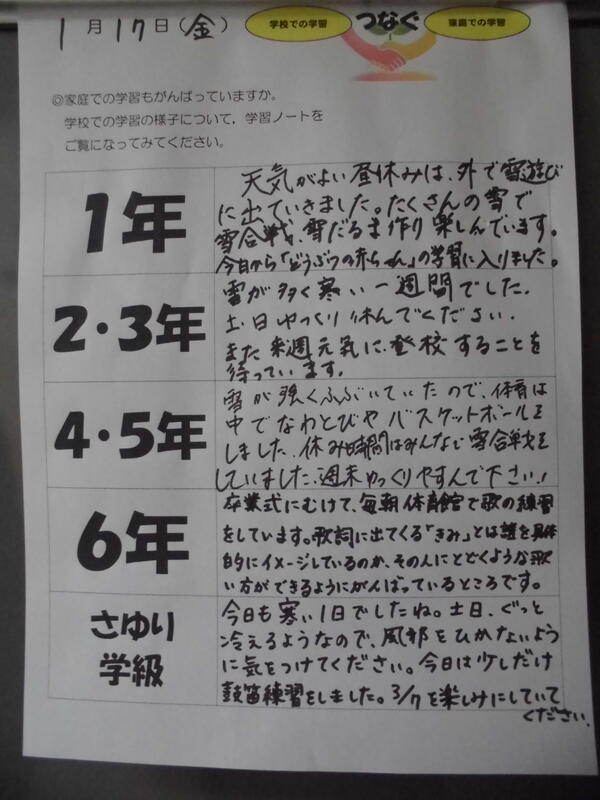 1月17日(金)
学校での学習 つなぐ 家庭での学習
◎家庭での学習もがんばっていますか。
学校での学習の様子について,学習ノートを
ご覧になってみてください。
1年
天気がよい昼休みは、外で雪遊び
に出ていきました。たくさんの雪で
雪合戦、雪だるま作り楽しんでいます。
今日から「どうぶつの赤ちゃん」の学習に入りました。
2・3年
雪が多く寒い一週間でした。
土・日ゆっくり休んでください。
また来週元気に登校することを
待っています。
4・5年
雪が強くふぶいていたので、体育は
中でなわとびやバスケットボールを
しました。休み時間はみんなで雪合戦を
していました。週末ゆっくりやすんで下さい!
6年
卒業式にむけて、毎朝体育館で歌の練習
をしています。歌詞に出てくる「きみ」とは誰を具体
的にイメージしているのか、その人にとどくような歌
い方ができるようにがんばっているところです。
さゆり
学級
今日も寒い1日でしたね。土日、ぐっと
冷えるようなので、風邪をひかないよう
に気をつけてください。今日は少しだけ
鼓笛練習をしました。3/7を楽しみにしていて
ください。